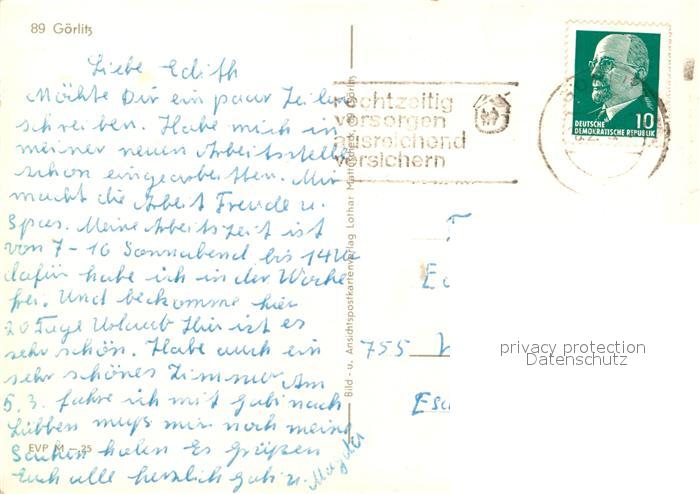 89 Görlitz
Liebe Edith
Möchte Dir ein paar Zeilen
schreiben. Habe mich in
meiner neuen Arbeitsstelle
schon eingearbeitten. Mir
macht die Arbeit Freude u.
Spas. Meine Arbeitszeit ist
von 7-16 Sonnabend bis 14 Uhr
dafür habe ich in der Woche
frei. Und beckomme hier
20 Tage Urlaub Hier ist es
sehr schön. Habe auch ein
sehr schönes Zimmer Am
5.3. fahre ich mit Gabi nach
Lübben muß mir noch meine
Sachen holen Es Grüßen
Euch alle herzlich Gabi u.
EVP M -.25
Bild- u. Ansichtspostkartenverlag Lothar
rechtzeitig
versorgen
ausreichend
versichern
10
DEUTSCHE
DEMOKRATISCHE REPUBLIK
755
privacy protection
Datenschutz